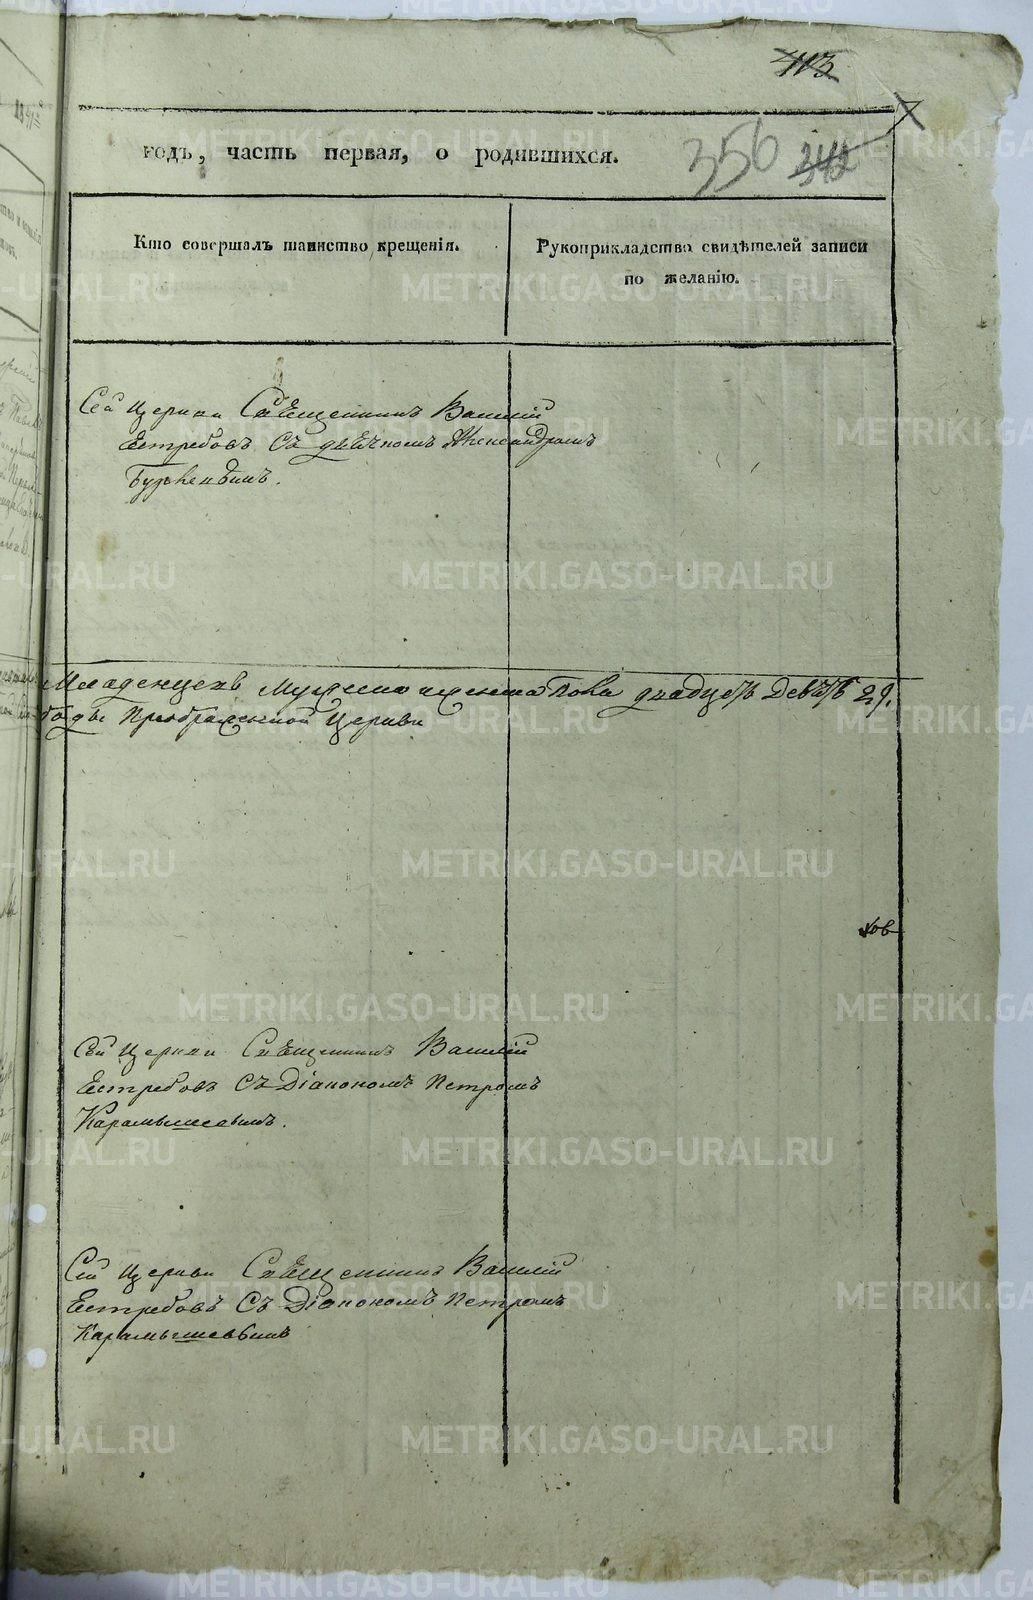 413
годъ, часть первая, о родившихся.
356 342
Кто совершалъ таинство крещенія.
Рукоприкладство свидѣтелей записи
по желанію.
Сей Церкви Священникъ Василій
Ястребовъ Съ дьячкомъ Александромъ
Младенцевъ Мужеска пола двадцать Девять 29.
Преображенской Церкви
ковъ
Сей Церкви Священникъ Василій
Ястребовъ Съ Діакономъ Петромъ
Карамышевымъ.
Сей Церкви Священникъ Василій
Ястребовъ Съ Діакономъ Петромъ
Карамышевымъ
METRIKI.GASO-URAL.RU